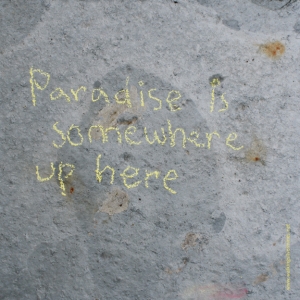 Paradise is
somewhere
up here